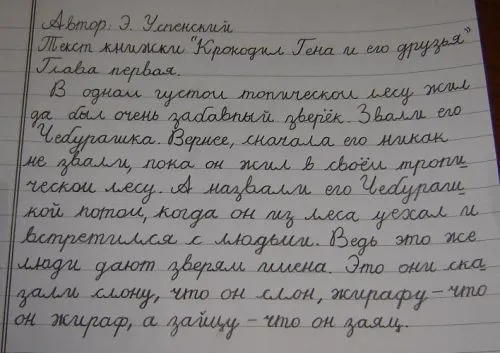 Автор: Э. Успенский
Текст книжки "Крокодил Гена и его друзья"
Глава первая.
В одном густом топическом лесу жил
да был очень забавный зверёк. Звали его
Чебурашка. Вернее, сначала его никак
не звали, пока он жил в своём тропи
ческом лесу. А назвали его Чебураш
кой потом, когда он из леса уехал и
встретился с людьми. Ведь это же
люди дают зверям имена. Это они ска
зали слону, что он слон, жирафу - что
он жираф, а зайцу - что он заяц.